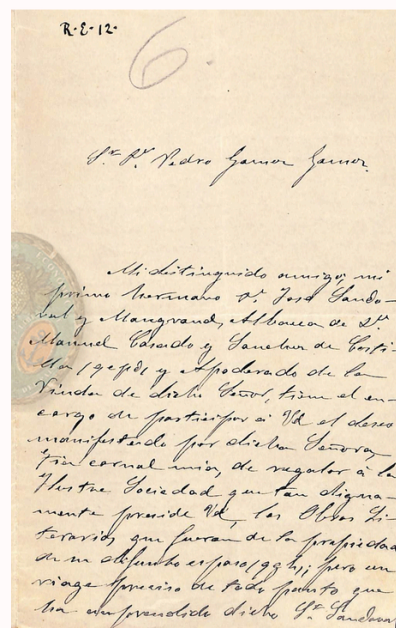 R-E-12-
6
Sr. Dn. Pedro Gamor Gamor.
Mi distinguido amigo; mi
primo hermano Dn. José Sando-
val y Mangrand, Albacea de Dn.
Manuel Casado y Sanchez de Casti-
lla (q e p d) y Apoderado de la
Viuda de dicho Señor, tiene el en-
cargo de participar á Vd el deseo
manifestado por dicha Señora
Tia carnal mia, de regalar á la
Ilustre Sociedad que tan digna-
mente preside Vd, las Obras Li-
terarias que fueran de la propiedad
de su difunto esposo (q g h); pero un
viage preciso de todo punto que
ha emprendido dicho Sr. Sandoval